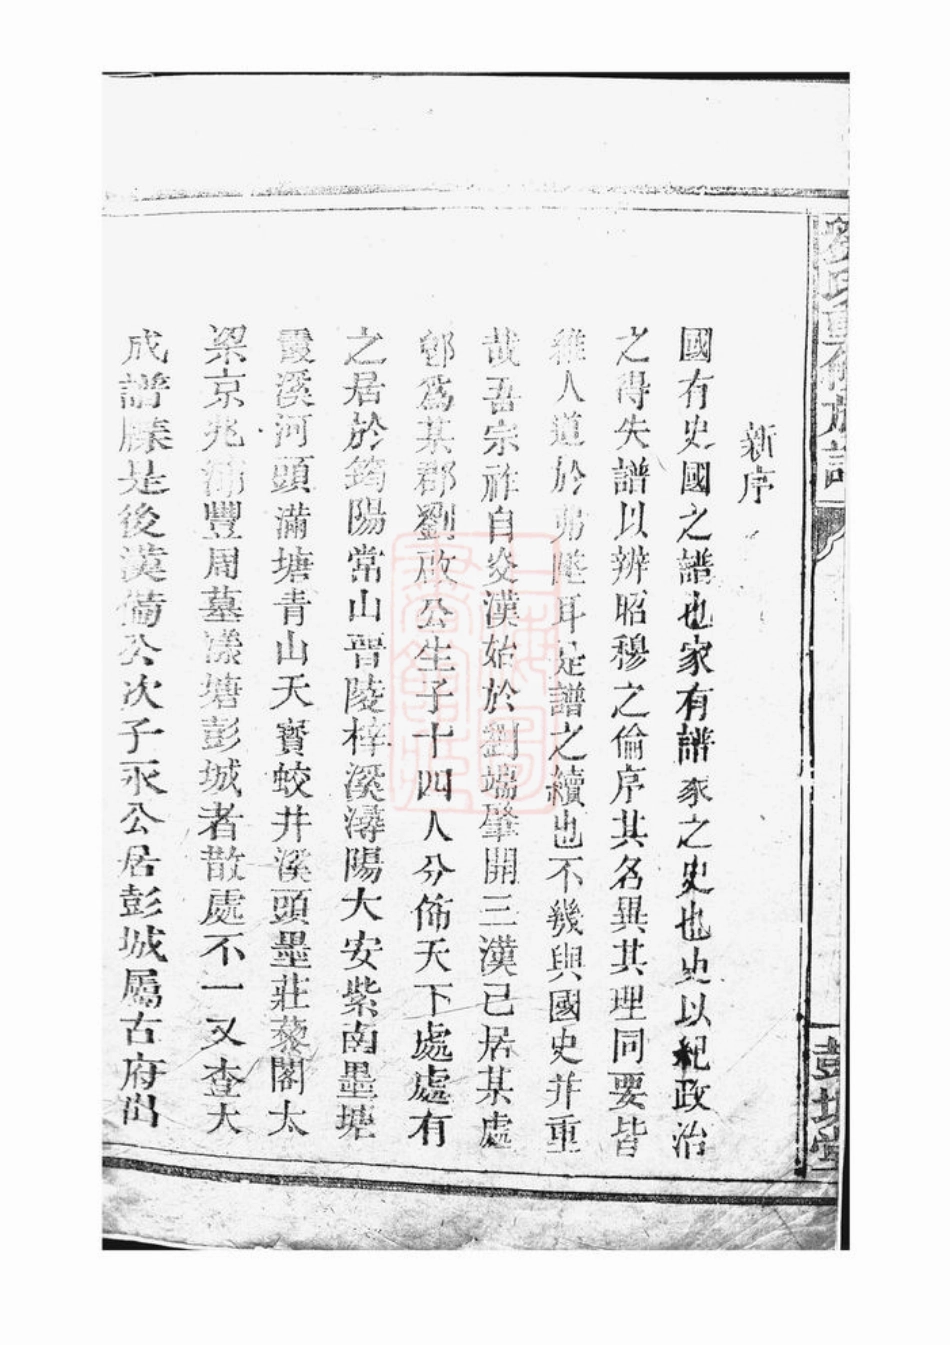 新序
國有史國之譜也家有譜家之史也史以紀政治
之得失譜以辨昭穆之倫序其名異其理同要皆
維人道於弗墜耳是譜之續也不幾與國史并重
哉吾宗祚自炎漢始於劉端肇開三漢已居某處
郇爲某郡劉啟公生子十四人分佈天下處處有
之居於筠陽常山晋陵梓溪潯陽大安紫南墨塘
霞溪河頭滿塘青山天寶蛟井溪頭墨莊藜閣太
梁京兆浦豐周墓漾塘彭城者散處不一又查大
成譜牒是後漢蔔公次子永公居彭城屬古府出
劉氏重修族譜
序
一
彭城堂